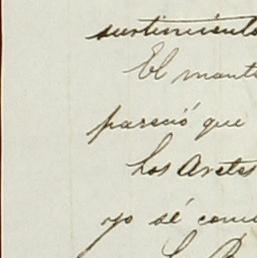 surtimiento
El mante
pareció que
Los Aretes
yo sé como